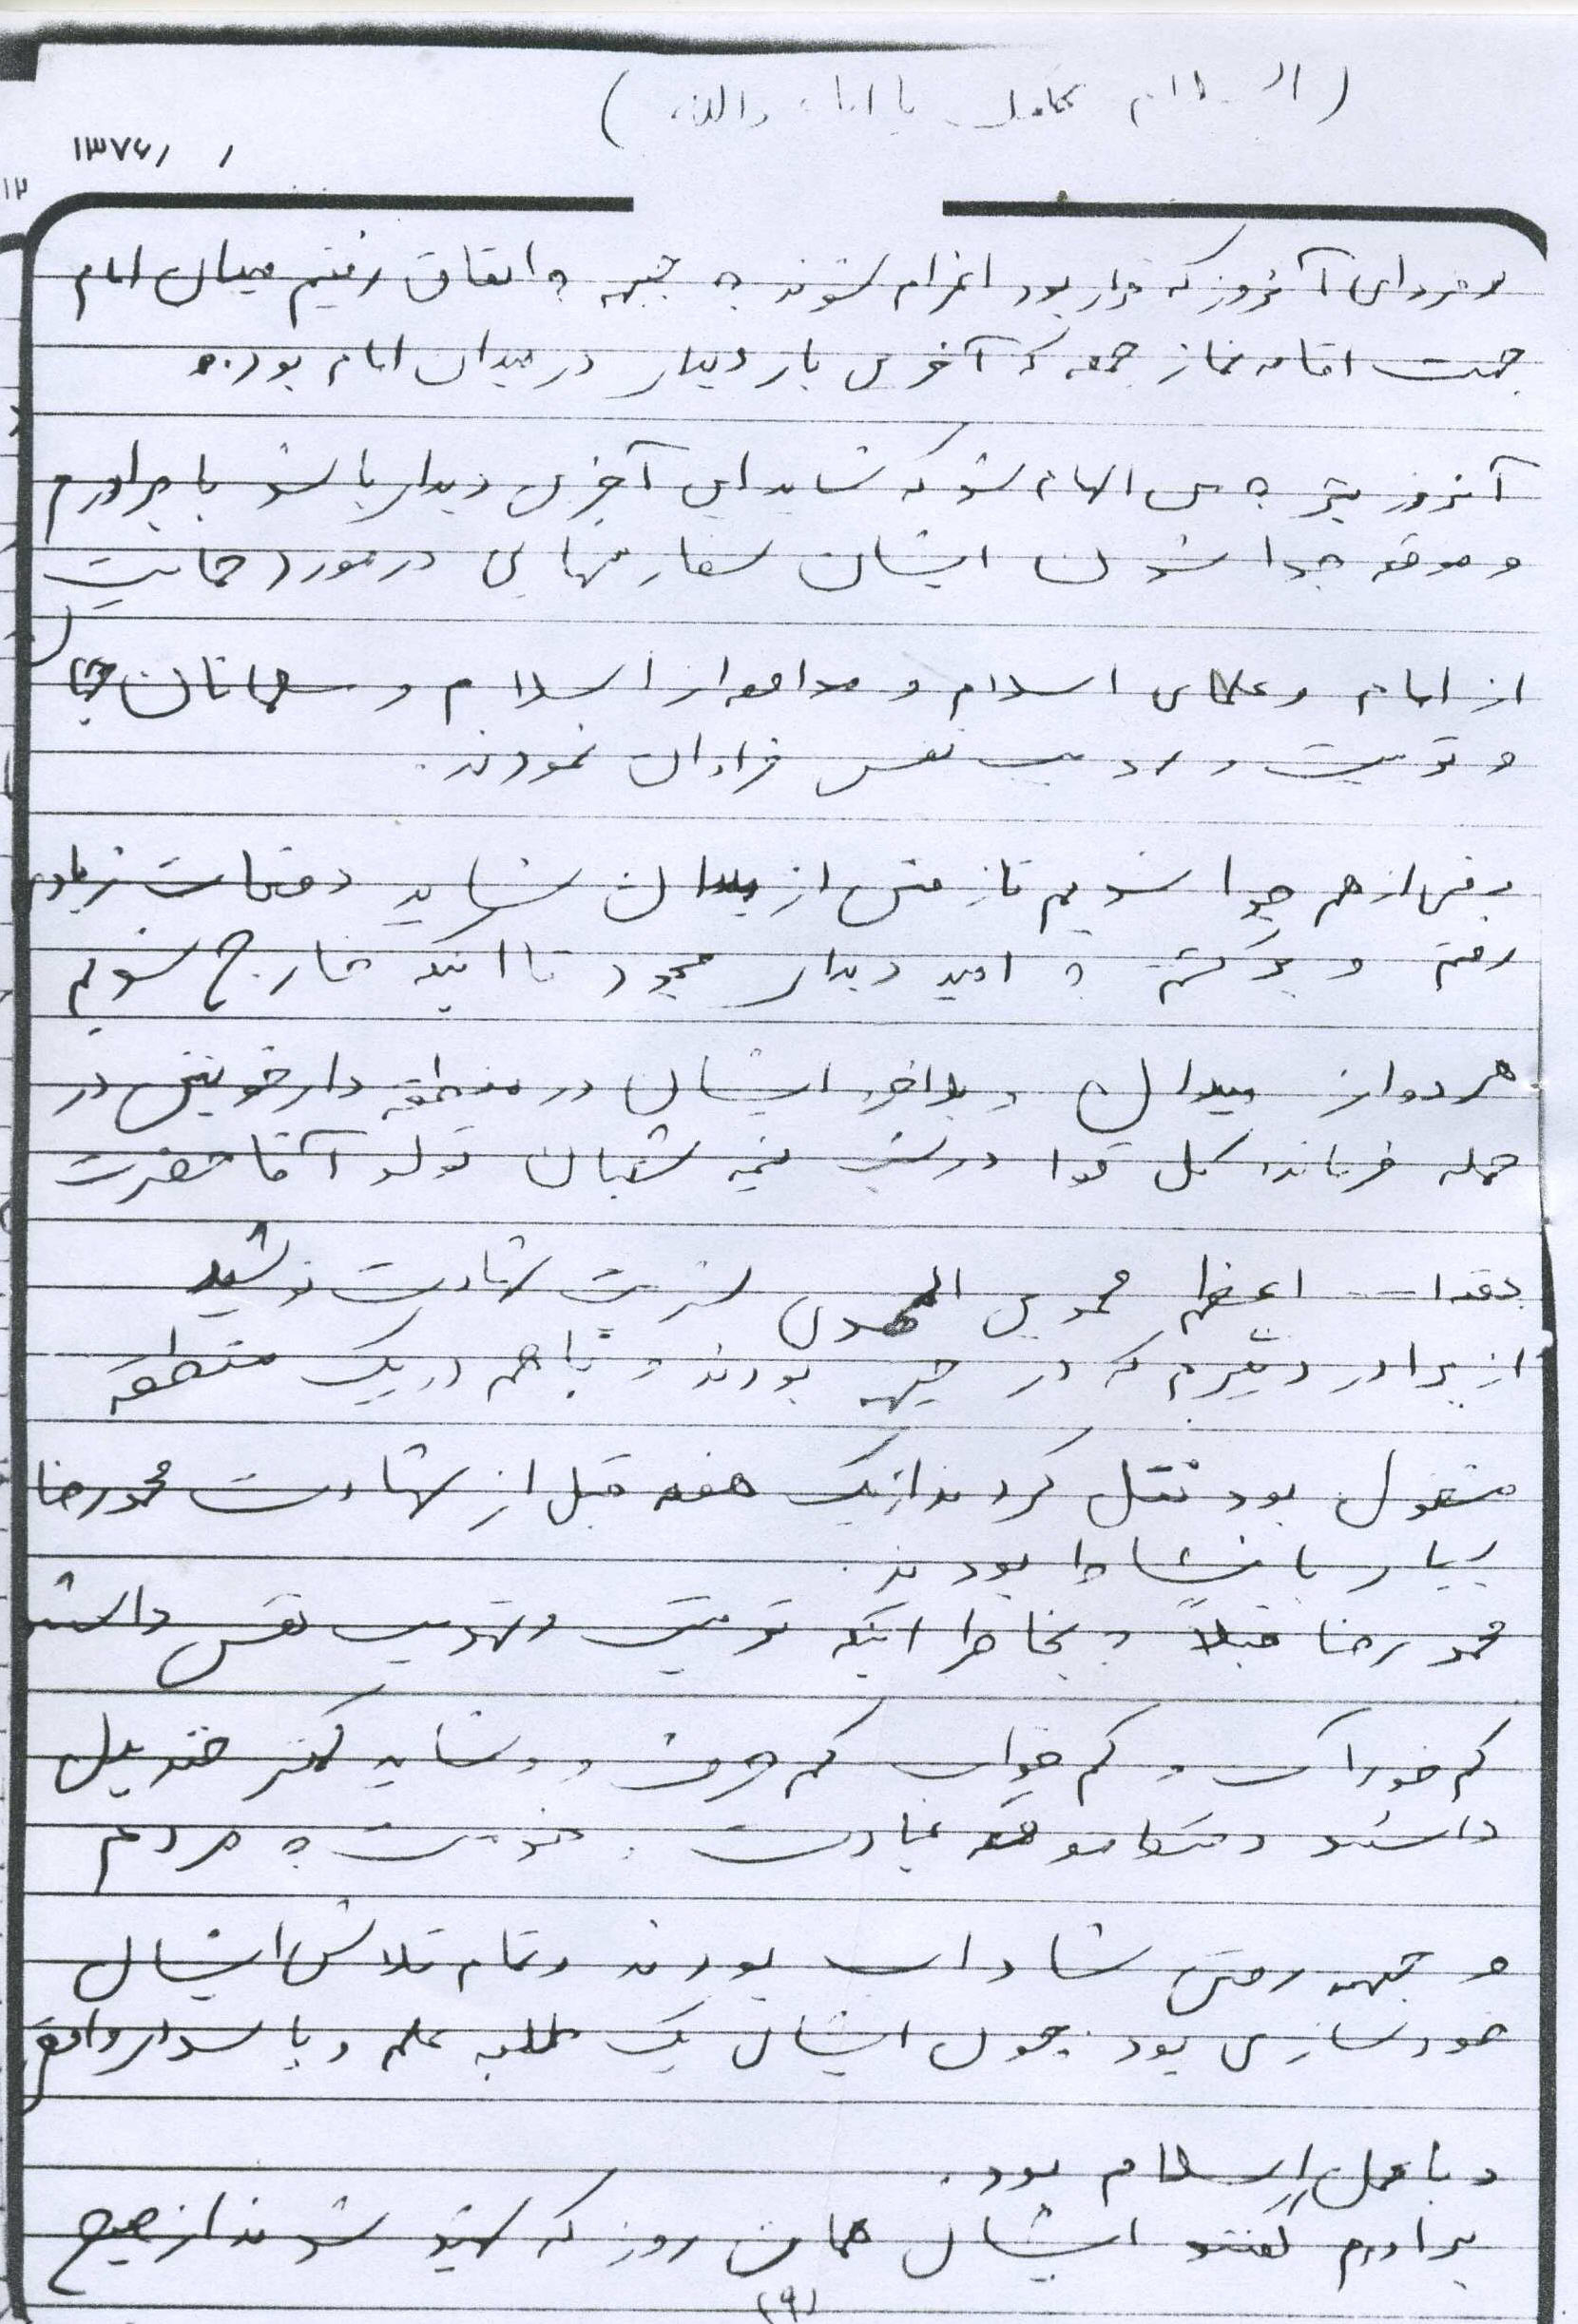 ۱۳۷۶/ /
فردای آنروز که قرار بود اعزام شوند به جبهه به اتفاق رفتیم میدان امام
جهت اقامه نماز جمعه که آخرین بار دیدار در میدان امام بود.
آنروز به من الهام شد که شاید این آخرین دیدار باشد با برادرم
و موقع جدا شدن ایشان سفارشهایی در مورد حمایت
از امام و علمای اسلام و مدافعه از اسلام و مسلمانان جهان
و تربیت و تهذیب نفس فراوان نمودند.
وقتی از هم جدا شدیم تا رفتن از میدان شاید دفعات زیادی
رفتم و برگشتم به امید دیدار مجدد تا اینکه خارج شدیم
هر دو از میدان و بلاخره ایشان در منطقه دارخوین در
حمله فرمانده کل قوا در شب نیمه شعبان تولد آقا حضرت
بقیه ا... اعظم محمد بن المهدی شربت شهادت نوشید
از برادر دیگرم که در جبهه بودند و با هم در یک منطقه
مشغول بود نقل کردند از یک هفته قبل از شهادت محمدرضا
بسیار با نشاط بودند.
محمدرضا قبلاً و بخاطر اینکه تربیت و تهذیب نفس داشتند
کم خوراک و کم خواب کم حرف و و شاید کمتر خنده
داشتند و فقط موقع عبادت و خدمت به مردم
و جبهه رفتن شاداب بودند و تمام تلاش ایشان
خودسازی بود. چون ایشان یک طلبه علم و پاسدار واقعی
و با عمل اسلام بود.
برادرم گفتند ایشان همان روز که شهید شدند از صبح
(۹)